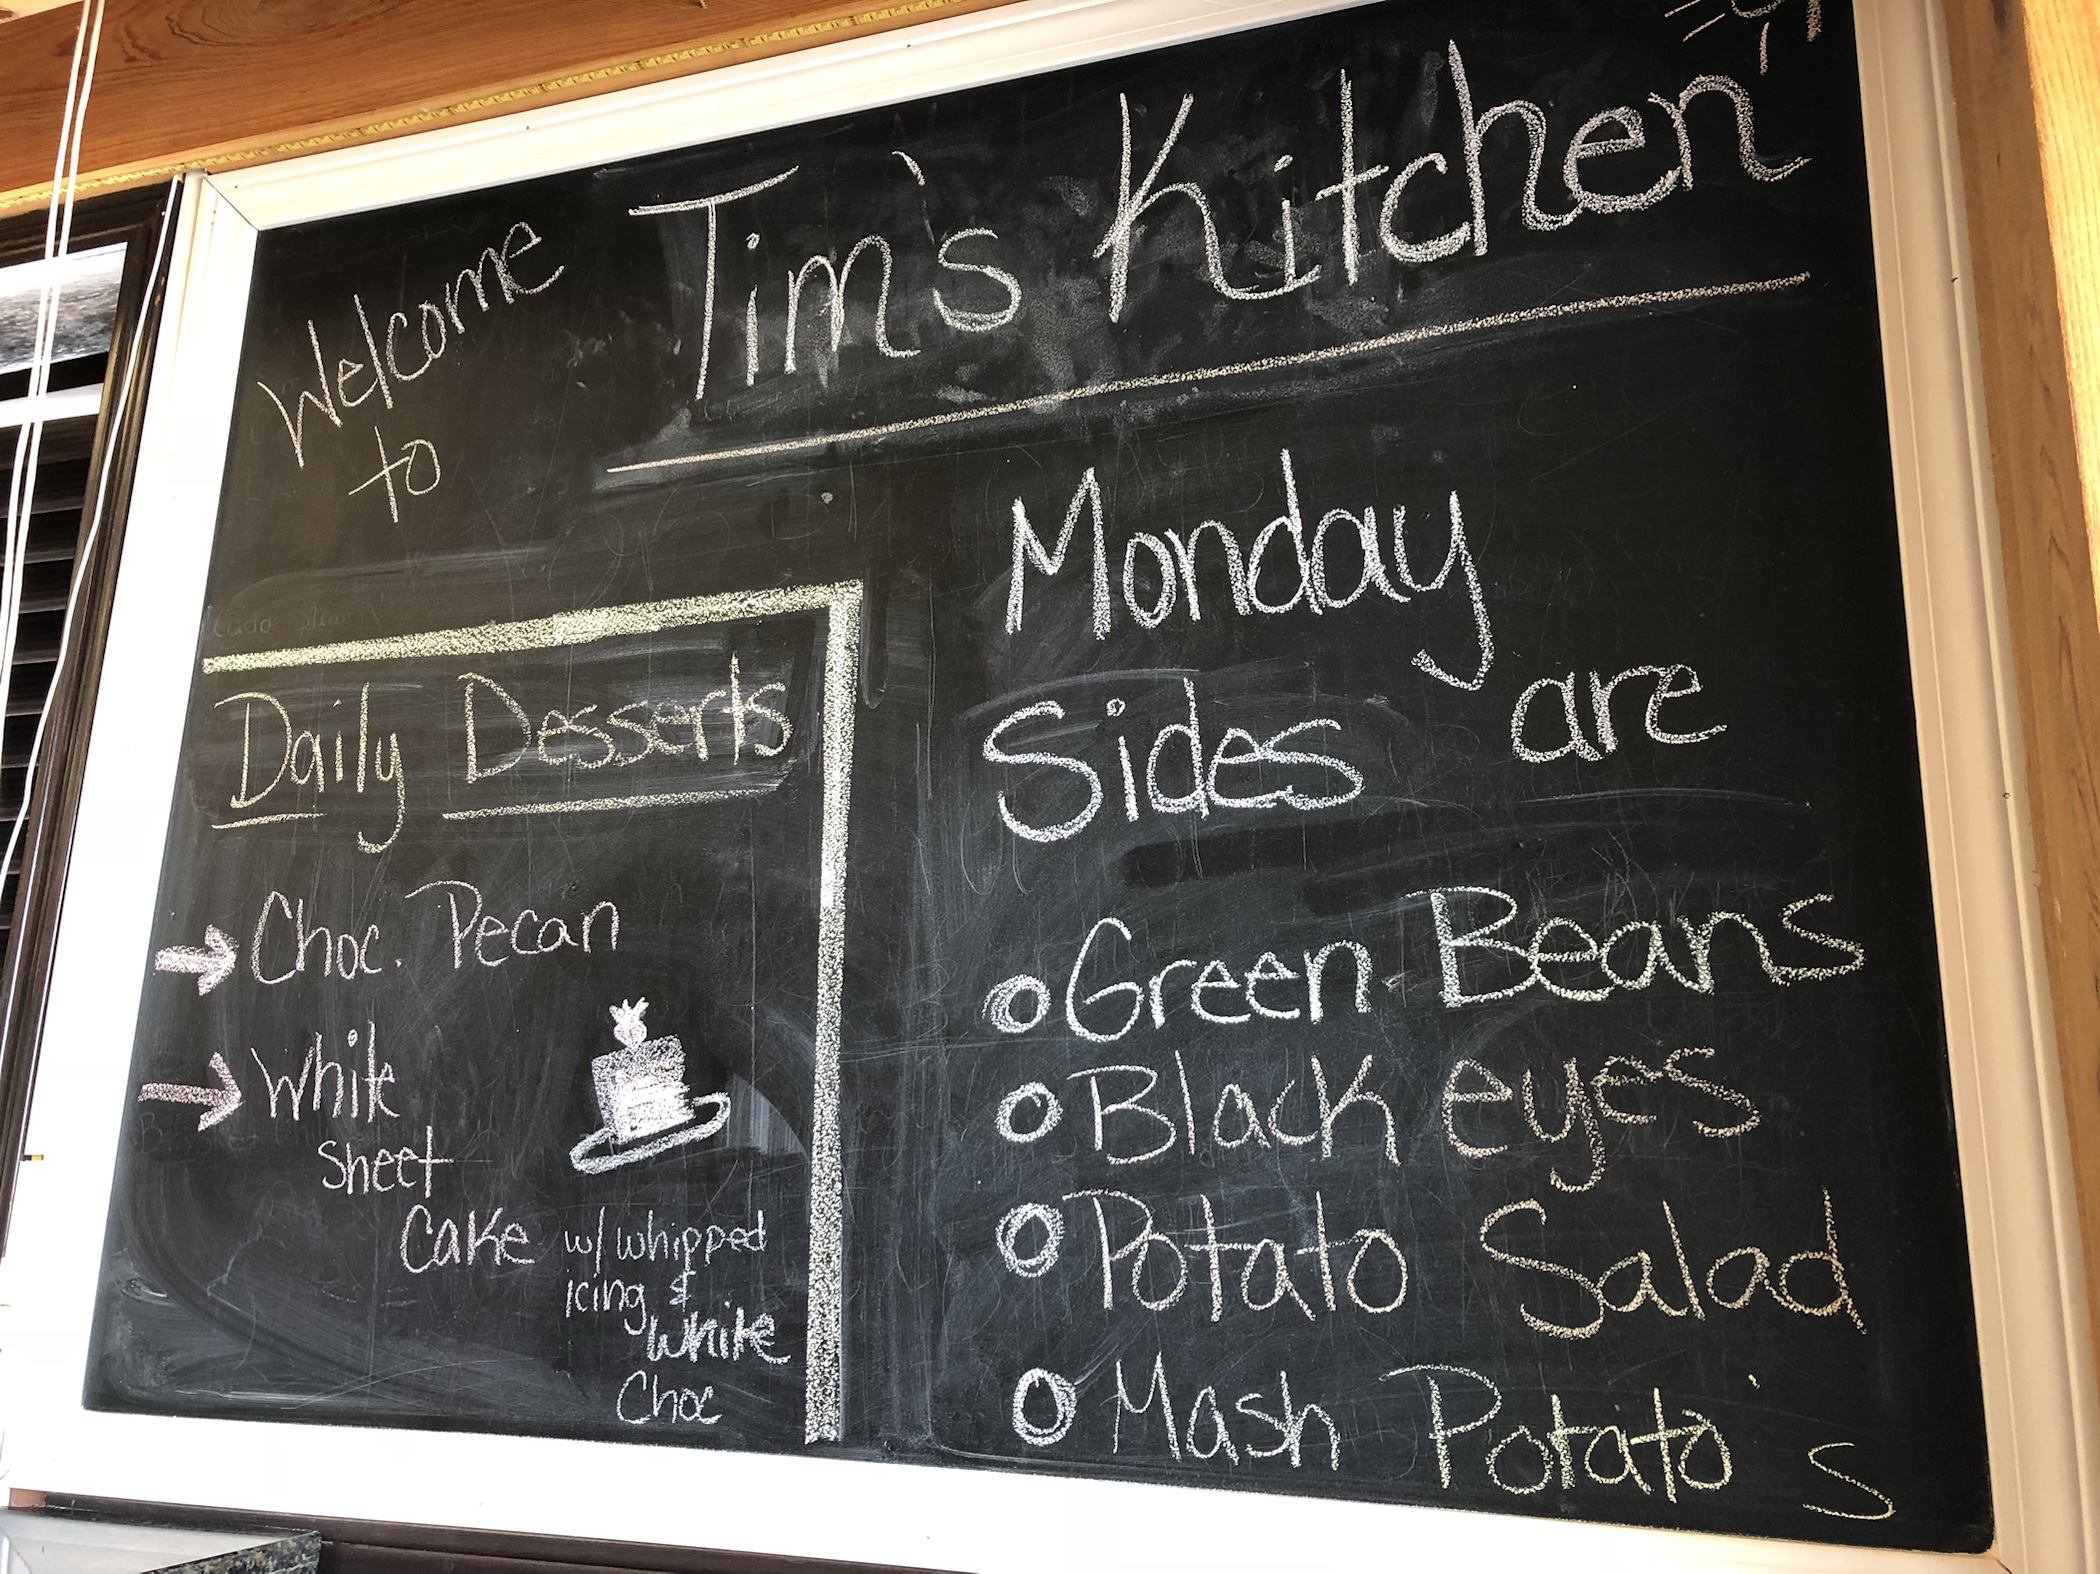 Welcome
to
Tim's Kitchen
Daily Desserts
Choc. Pecan
White
Sheet
Cake w/ whipped
icing &
White
Choc
Monday
Sides are
Green Beans
Black eyes
Potato Salad
Mash Potato's